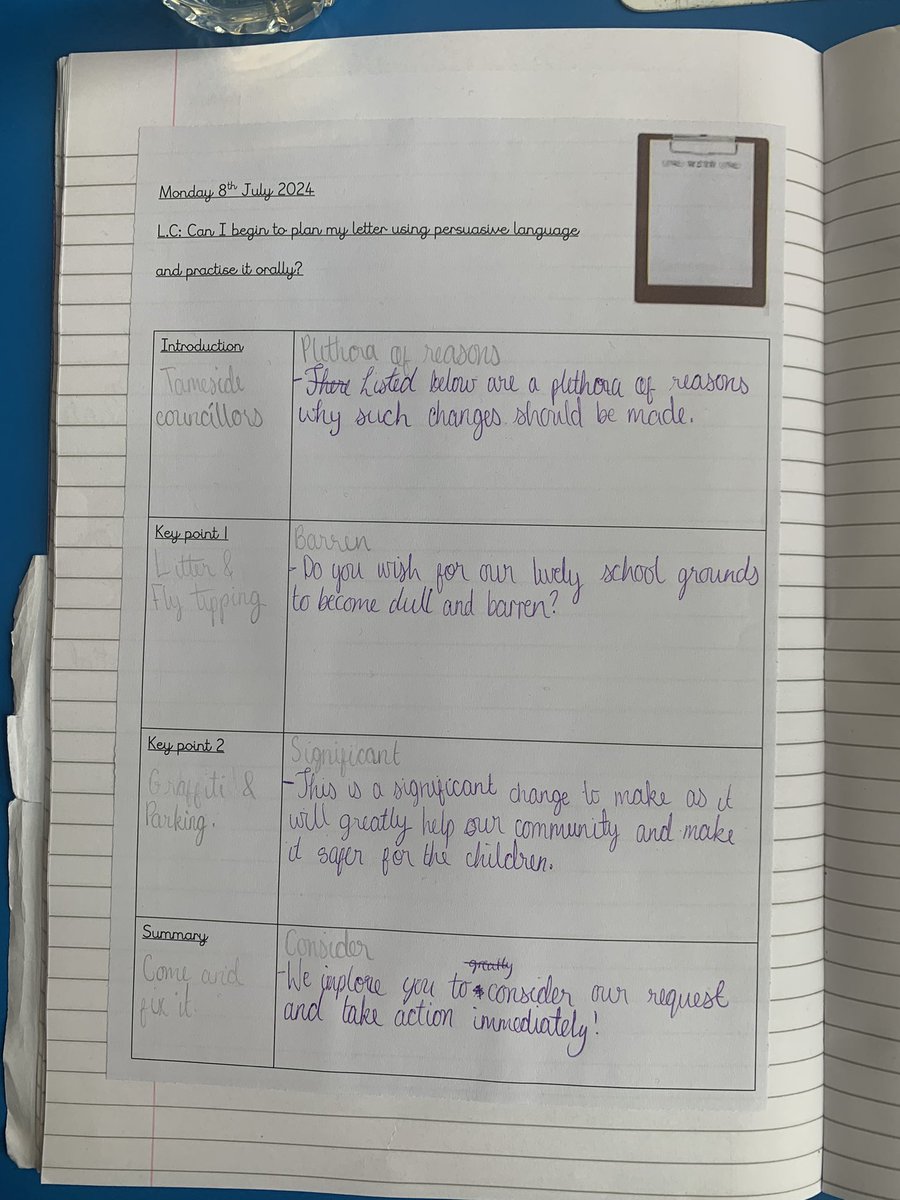 Monday 8th July 2024
L.C: Can I begin to plan my letter using persuasive language
and practise it orally?
Introduction
Tameside
councillors
Plethora of reasons
- There Listed below are a plethora of reasons
why such changes should be made.
Key point 1
Litter &
Fly tipping
Barren
- Do you wish for our lively school grounds
to become dull and barren?
Key point 2
Graffiti &
Parking.
Significant
- This is a significant change to make as it
will greatly help our community and make
it safer for the children.
Summary
Come and
fix it.
Consider
greatly
- We implore you to consider our request
and take action immediately!